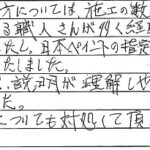 方については、施工の数
る職人さんが多く経
たし、日本ペイントの指定
たしました。
、説明が理解しや
た。
についても対処して頂